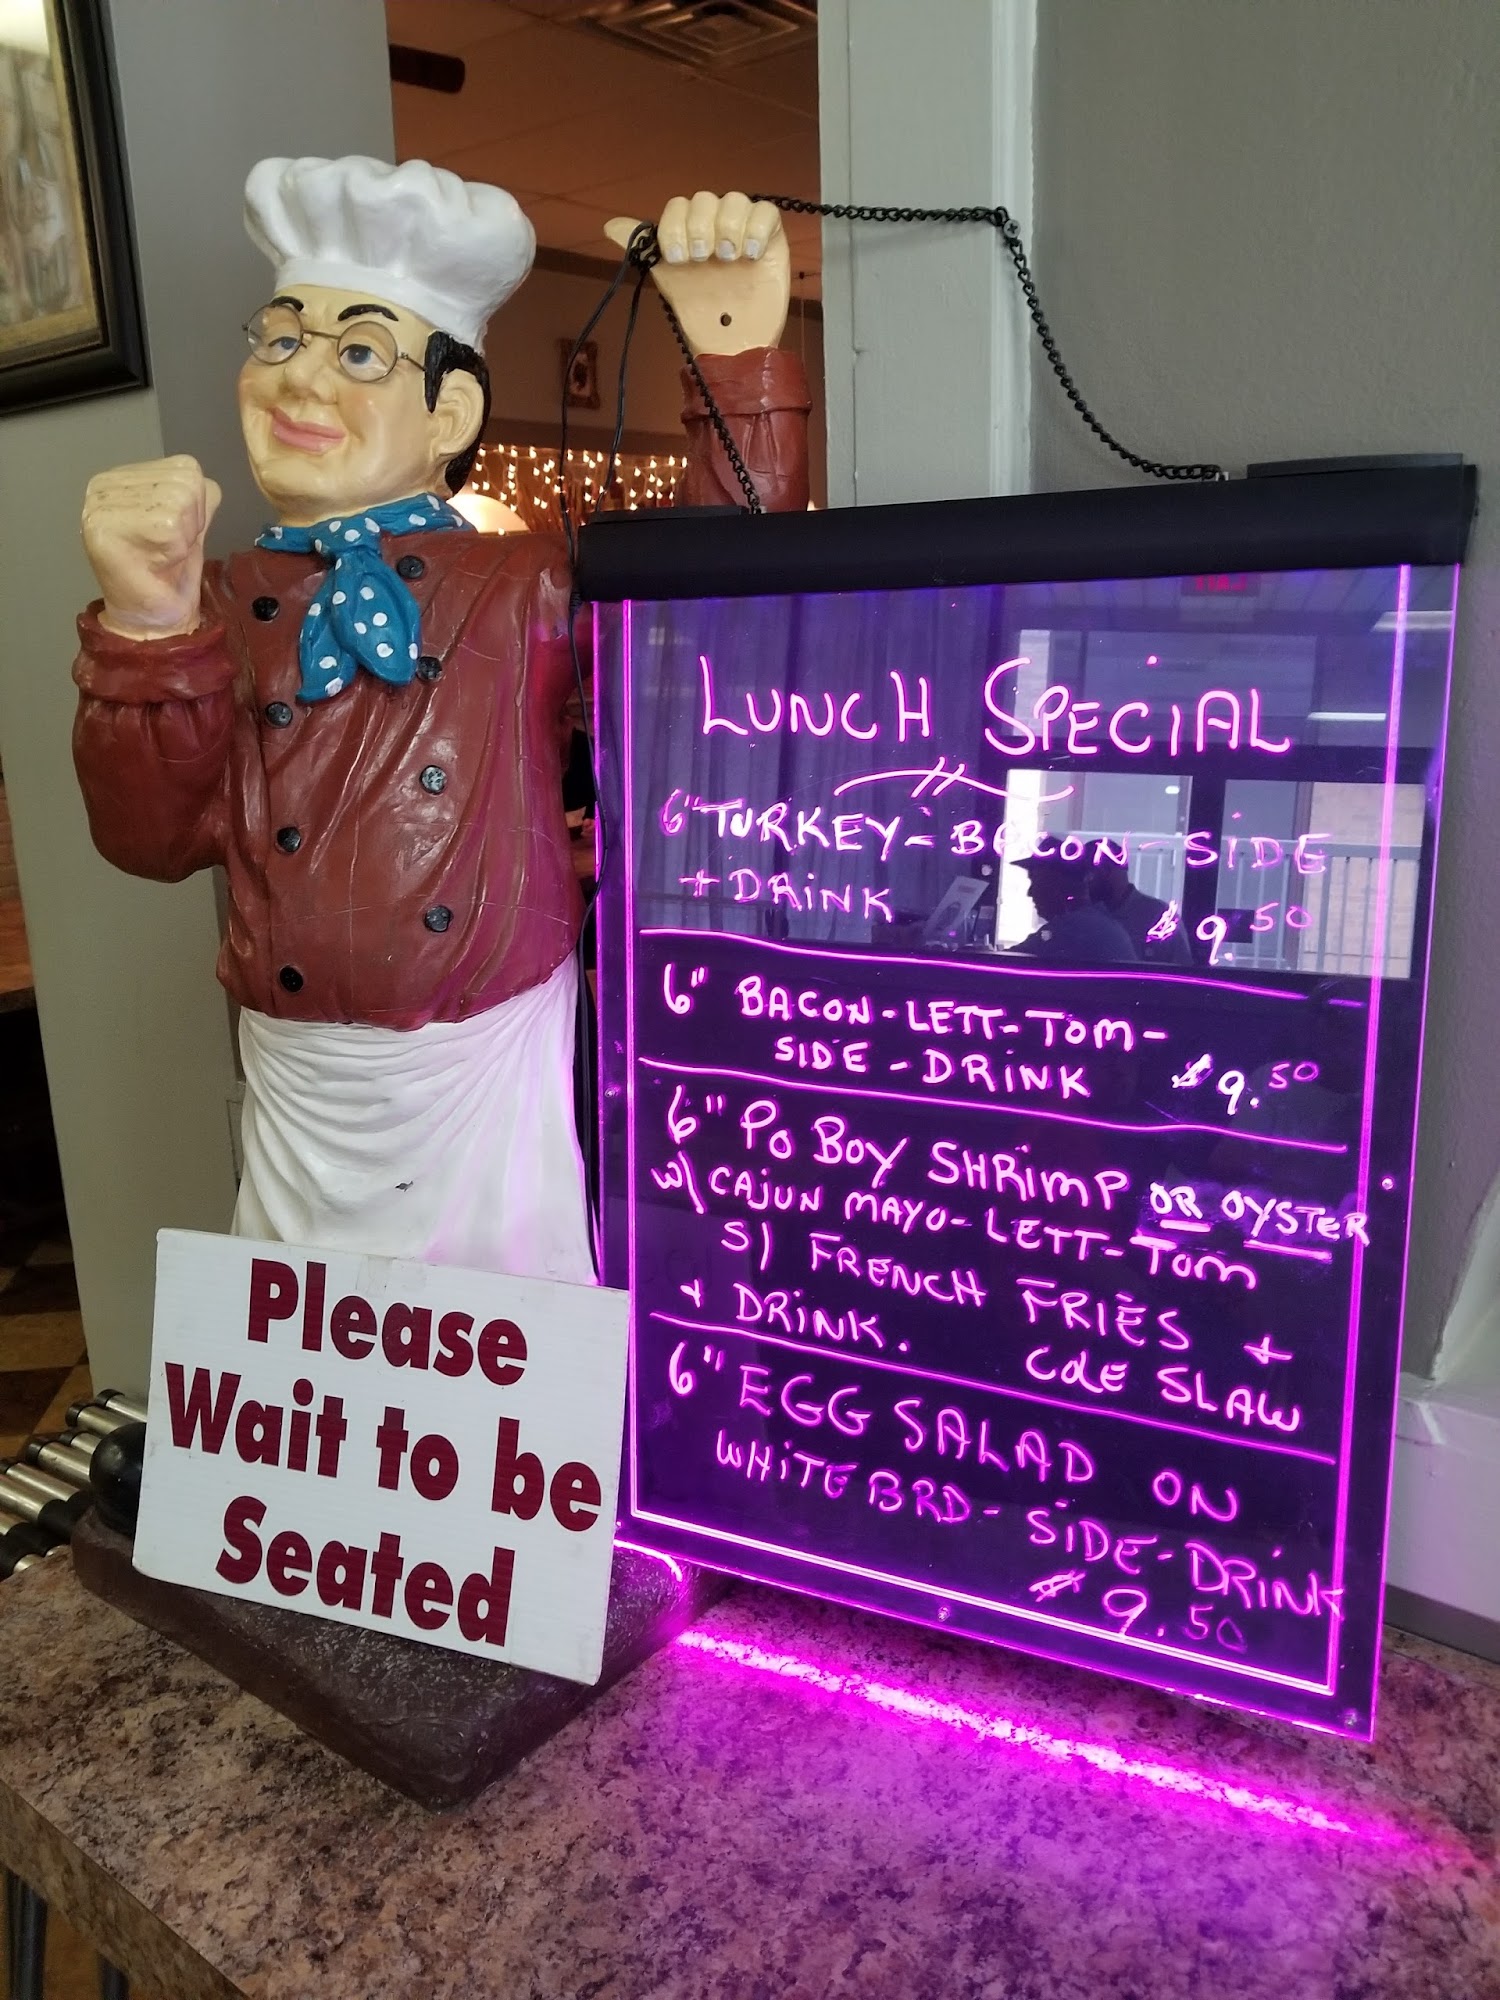 LUNCH SPECIAL
6" TURKEY-BACON-SIDE
+ DRINK $9.50
6" BACON-LETT-TOM-
SIDE-DRINK $9.50
6" PO BOY SHRIMP OR OYSTER
W/ CAJUN MAYO-LETT-TOM
S/ FRENCH FRIES +
+ DRINK. COLE SLAW
6" EGG SALAD ON
WHITE BRD-SIDE-DRINK
$9.50
Please
Wait to be
Seated